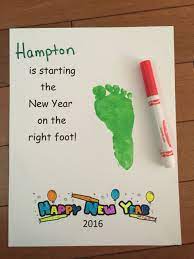 Hampton
is starting
the
New Year
on the
right foot!
HAPPY NEW YEAR
2016